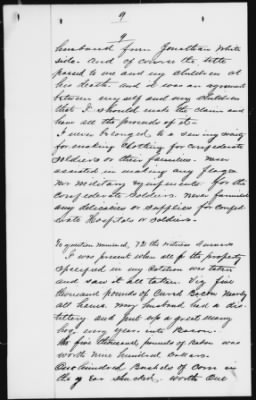 9
9
husband from Jonathan White
side. And of course the title
passed to me and my children at
his death. and it was an agreement
between myself and my children
that I should make the claim and
have all the proceeds of it.
I never belonged to a sewing society
for making clothing for confederate
soldiers or their families. never
assisted in making any flags
nor military equipments for the
confederate soldiers. never furnished
any delicacies or supplies for Confed-
erate Hospitals or soldiers.
To question numbered, 72 the witness answers
I was present when all of the property
specified in my petition was taken
and saw it all taken. Viz five
thousand pounds of Cured Bacon nearly
all hams. my husband had a dis-
tillery and put up a great many
hogs every year into Bacon.
The five thousand pounds of Bacon was
worth nine hundred dollars.
One hundred Bushels of Corn in
the Ear shucked, worth One